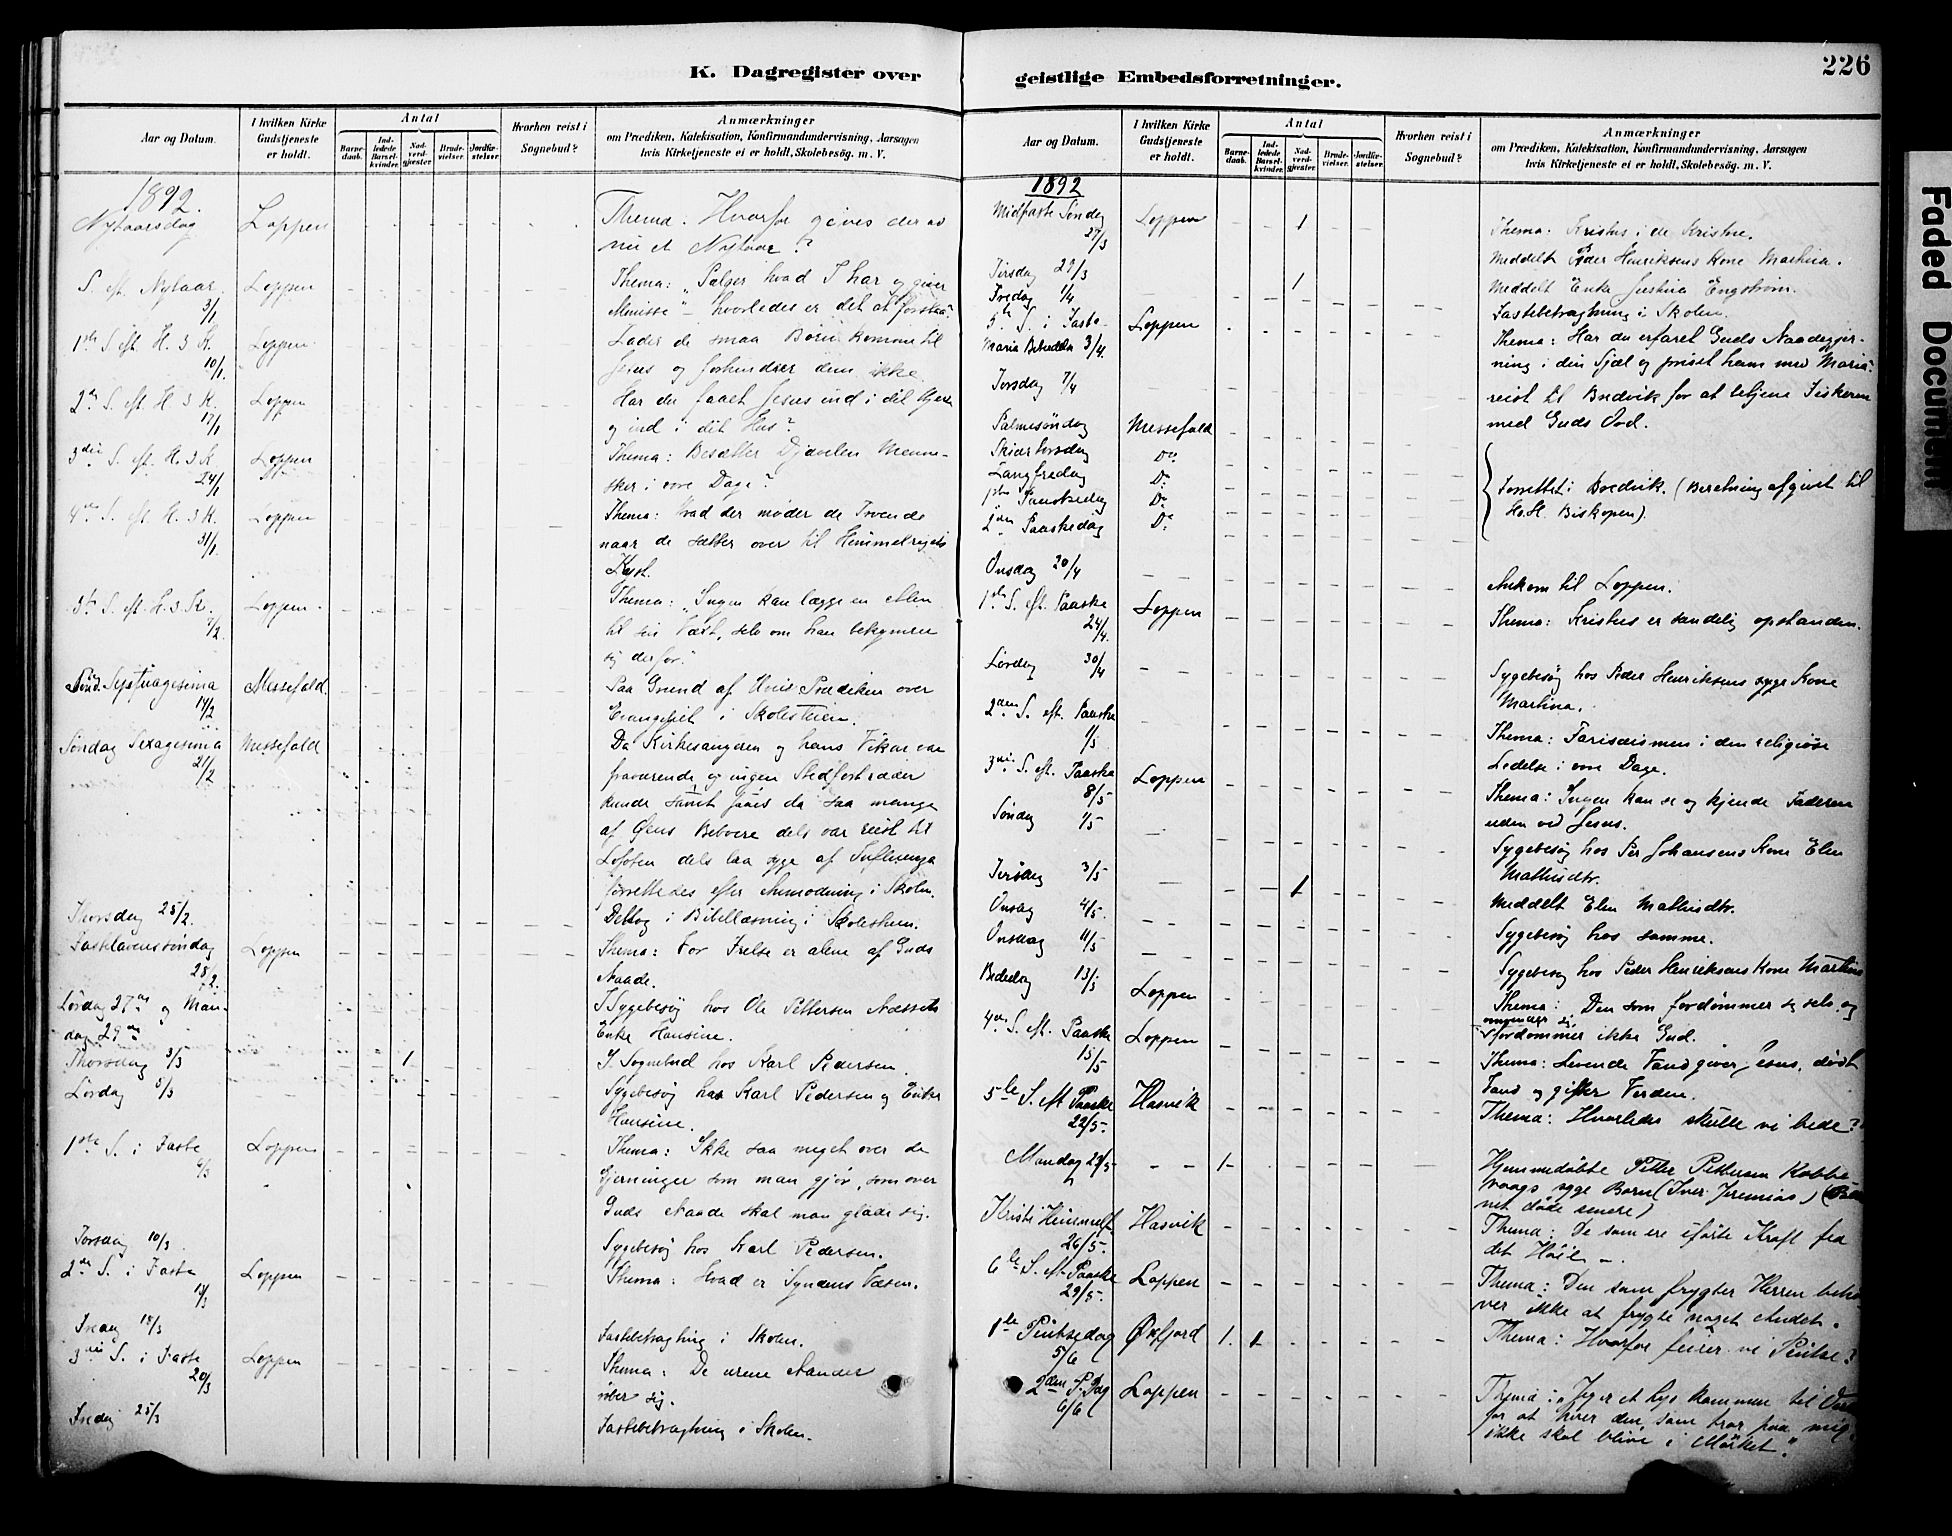 K. Dagregister over
Aar og Datum.
I hvilken Kirke Gudstjeneste er holdt.
Antal
Barnedaab. Indledede Barselkvinder. Nadverdgjester Brudevielser. Jordfæstelser
Hvorhen reist i Sognebud?
Anmærkninger
om Prædiken, Katekisation, Konfirmandundervisning, Aarsagen
hvis Kirketjeneste ei er holdt, Skolebesög. m. V.
1892.
Nytaarsdag Loppen Thema: Hvorfor gives der os
nu et Nytaar?
S. eft. Nytaar 3/1 Loppen Thema: "Sælger hvad I har og giver
Almisse" - hvorledes er det at forstaa?
1ste S. eft. H. 3 K. 10/1 Loppen Lader de smaa Börn komme til
Jesus og forhindrer dem ikke
2den S. eft. H. 3 K. 17/1 Loppen Har du faaet Jesus ind i dit Hjerte
og ind i dit Hus?
3die S. eft. H. 3 K. 24/1 Loppen Thema: Besætter Djævelen Menne-
sker i vore Dage?
4de S. eft. H. 3 K. 31/1 Loppen Thema: Hvad der møder de Troende
naar de sætter over til Himmelrigets
Kyst.
5te S. eft. H. 3 K. 7/2 Loppen Thema: "Ingen kan lægge en Alen
til sin Vext, selv om han bekymrer
sig derfor."
Sönd. Septuagesima 14/2 Messefald Paa Grund af Prædiken over
Evangeliet i Skolestuen.
Søndag Sexagesima 21/2 Messefald Da Kirkesangeren og hans Vikar var
fraværende og ingen Stedfortræder
kunde faaes da saa mange
af Øens Beboere dels var reist til
Lofoten dels laa syge af Influenza
forrettedes efter Anmodning i Skolen.
Thorsdag 25/2. Deltog i Bibellæsning i Skolestuen.
Fastelavenssøndag 28/2 Loppen Thema: Vor Frelse er alene af Guds
Naade.
Lördag 27de og Man- I Sygebesög hos Ole Pettersen Næssets
dag 29de Enke Hansine.
Thorsdag 3/3 1 I Sognebud hos Karl Pedersen.
Lördag 5/3 Sygebesög hos Karl Pedersen og Enke
Hansine.
1ste S. i Faste 6/3 Loppen Thema: Ikke saa meget over de
Gjerninger som man gjör, som over
Guds Naade skal man glæde sig.
Torsdag 10/3 Sygebesög hos Karl Pedersen.
2den S. i Faste 13/3 Loppen Thema: Hvad er Syndens Væsen.
Fredag 18/3 Fastebetragtning i Skolen.
3die S. i Faste 20/3 Loppen Thema: De urene Aander
rører sig.
Fredag 25/3 Fastebetragtning i Skolen.
geistlige Embedsforretninger.
226
Aar og Datum.
I hvilken Kirke Gudstjeneste er holdt.
Antal
Barnedaab. Indledede Barselkvinder. Nadverdgjester Brudevielser. Jordfæstelser
Hvorhen reist i Sognebud?
Anmærkninger
om Prædiken, Katekisation, Konfirmandundervisning, Aarsagen
hvis Kirketjeneste ei er holdt, Skolebesög. m. V.
1892
Midfaste Söndag 27/3 Loppen 1 Thema: Kristus i de Kristne.
Meddelt Peder Henriksens Kone Martina.
Tirsdag 29/3 1 Meddelt Enke Justina Engström.
Fredag 1/4 Fastebetragtning i Skolen.
5te S. i Faste Loppen Thema: Har du erfaret Guds Naadegjer-
Maria Bebudelse 3/4. ning i din Sjæl og priset ham med Maria.
Torsdag 7/4 reist til Bredvik for at betjene Fiskeren
med Guds Ord.
Palmesøndag Messefald
Skjærtorsdag Do
Langfredag Do Forrettet i Bredvik. (Beretning afgivet til
1ste Paaskedag Do Hs.H. Biskopen).
2den Paaskedag Do
Onsdag 20/4 Ankom til Loppen.
1ste S. eft. Paaske 24/4. Loppen Thema: Kristus er sandelig opstanden.
Lördag 30/4 Sygebesög hos Peder Henriksens syge Kone
Martina.
2den S. eft. Paaske 1/5 Thema: Farisæismen i den religiøse
Ledelse i vore Dage.
3die S. eft. Paaske 8/5 Loppen Thema: Ingen kan se og kjende Faderen
uden ved Jesus.
Søndag 1/5 Sygebesög hos Per Johansens Kone Elen
Mathisdtr.
Tirsdag 3/5 1 Meddelt Elen Mathisdtr.
Onsdag 4/5. Sygebesög hos samme.
Onsdag 11/5 Sygebesög hos Peder Henriksens Kone Martina
Bededag 13/5 Loppen Thema: Den som fordømmer sig selv og
omvender sig,
fordömmer ikke Gud.
4de S. eft. Paaske 15/5 Loppen Thema: Levende Vand giver Jesus, dødt
Vand og gifter Verden.
5te S. eft. Paaske 22/5. Hasvik Thema: Hvorledes skulle vi bede?
Mandag 23/5 1 Hjemmedöbte Petter Pettersen Kobbe-
vaags syge Barn (Iver Jeremias) (Bar-
net døde senere)
Kristi Himmelf. 26/5. Hasvik Thema: De som ere iførte Kraft fra
det Höie.
6te S. eft. Paaske 29/5. Loppen Thema: Den som frygter Herren behö-
ver ikke at frygte noget Andet.
1ste Pintsedag 5/6 Øxfjord 1. 1 Thema: Hvorfor feirer vi Pintse?
2den P. Dag 6/6 Loppen Thema: "Jeg er et Lys kommen til Verden
for at hver den, som tror paa mig,
ikke skal blive i Mörket."
Faded Document